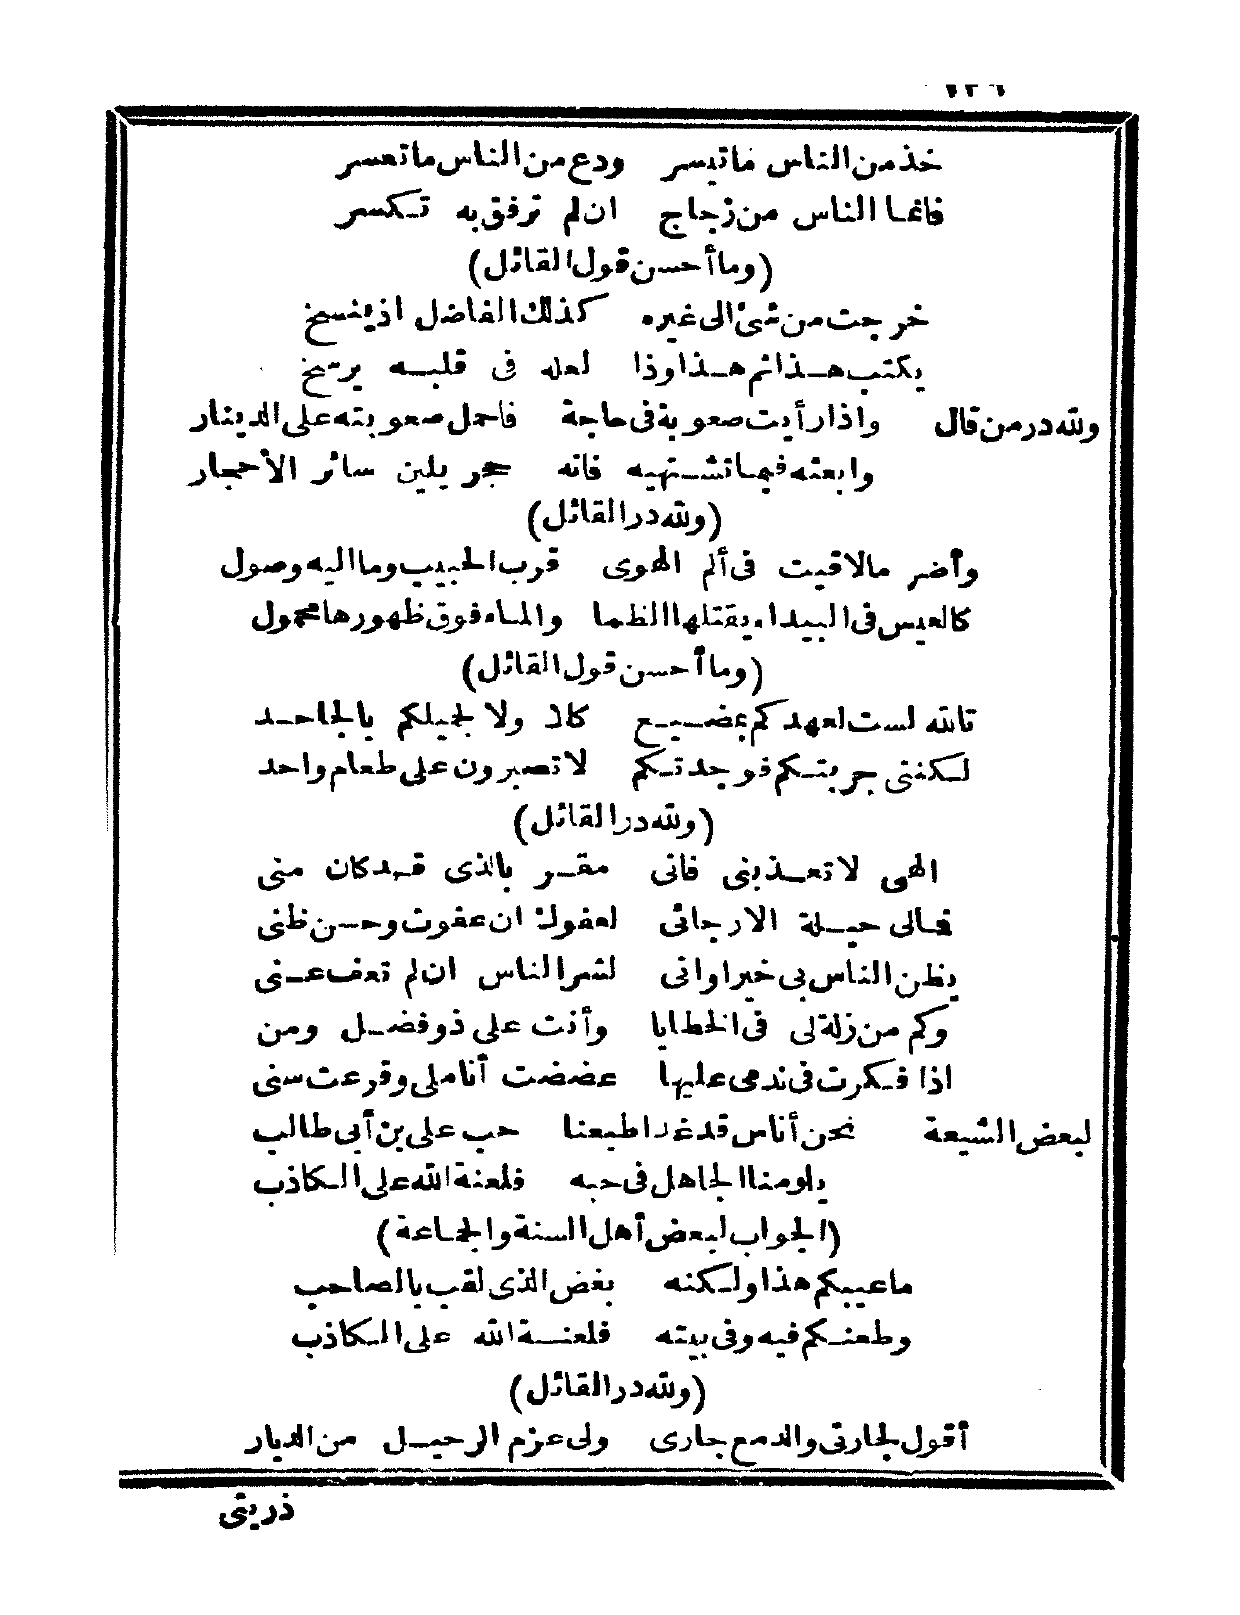 خذ من الناس ما تيسر ودع من الناس ما تعسر
فانما الناس من زجاج ان لم ترفق به تكسر
(وما أحسن قول القائل)
خرجت من شئ الى غيره كذلك الفاضل اذ ينسخ
يكتب هذا ثم هذا وذا لعله فى قلبه يرسخ
ولله در من قال واذا رأيت صعوبة فى حاجة فاحمل صعوبته على الدينار
وابعثه فيما تشتهيه فانه حجر يلين سائر الأحجار
(ولله در القائل)
وأضر ما لاقيت فى ألم الهوى قرب الحبيب وما اليه وصول
كالعيس فى البيداء يقتلها الظما والماء فوق ظهورها محمول
(وما أحسن قول القائل)
تالله لست لعهدكم بمضيع كلا ولا لجميلكم بالجاحد
لكننى جربتكم فوجدتكم لا تصبرون على طعام واحد
(ولله در القائل)
الهى لا تعذبنى فانى مقر بالذى قد كان منى
فمالى حيلة الا رجائى لعفوك ان عفوت وحسن ظنى
يظن الناس بى خيرا وانى لشر الناس ان لم تعف عنى
وكم من زلة لى فى الخطايا وأنت على ذو فضل ومن
اذا فكرت فى ندمى عليها عضضت أناملى وقرعت سنى
لبعض الشيعة نحن أناس قد غدا طبعنا حب على بن أبى طالب
يلومنا الجاهل فى حبه فلعنة الله على الكاذب
(الجواب لبعض أهل السنة والجماعة)
ما عيبكم هذا ولكنه بغض الذى لقب بالصاحب
وطعنكم فيه وفى بيته فلعنة الله على الكاذب
(ولله در القائل)
أقول لجارتى والدمع جارى ولى عزم الرحيل من الديار
ذرينى